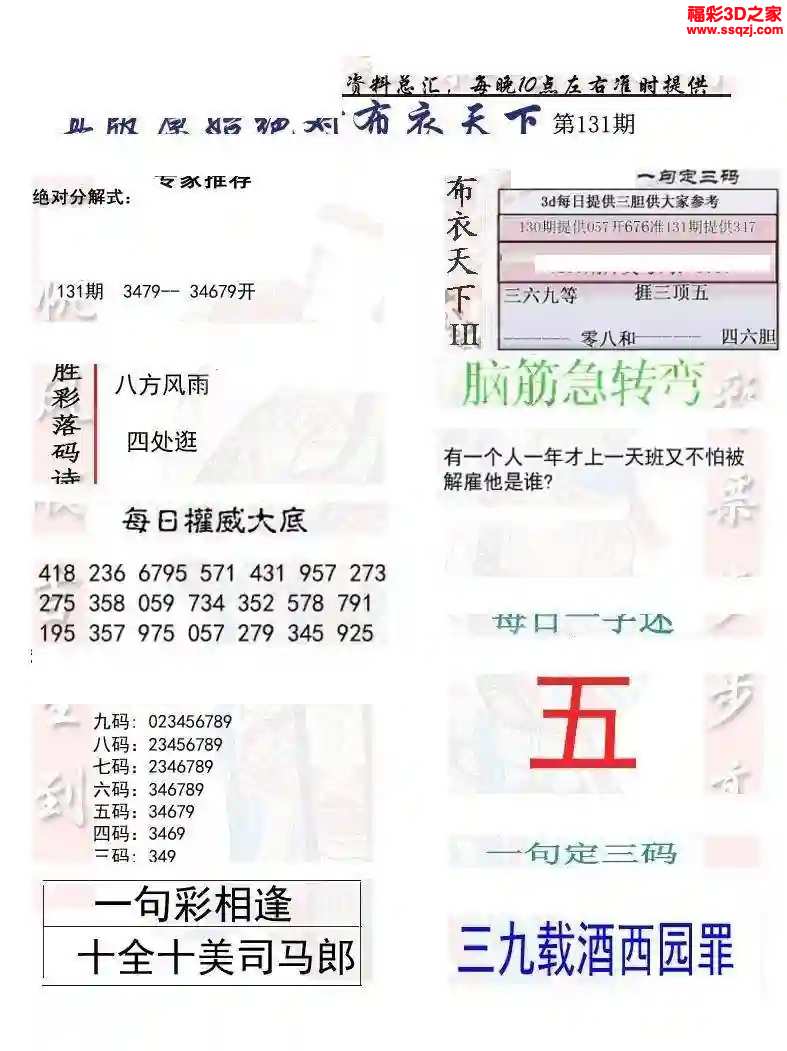 福彩3D之家
www.ssqzj.com
资料总汇，每晚10点左右准时提供
布衣天下 第131期
专家推荐
绝对分解式:
131期 3479-- 34679开
布衣天下III
一句定三码
3d每日提供三胆供大家参考
130期提供057开676准131期提供317
三六九等 捱三顶五
------- 零八和------- 四六胆
胜彩落码诗
八方风雨
四处逛
脑筋急转弯
有一个人一年才上一天班又不怕被
解雇他是谁?
每日權威大底
418 236 6795 571 431 957 273
275 358 059 734 352 578 791
195 357 975 057 279 345 925
每日一字迷
五
九码: 023456789
八码: 23456789
七码: 2346789
六码: 346789
五码: 34679
四码: 3469
三码: 349
一句定三码
一句彩相逢
十全十美司马郎
三九载酒西园罪